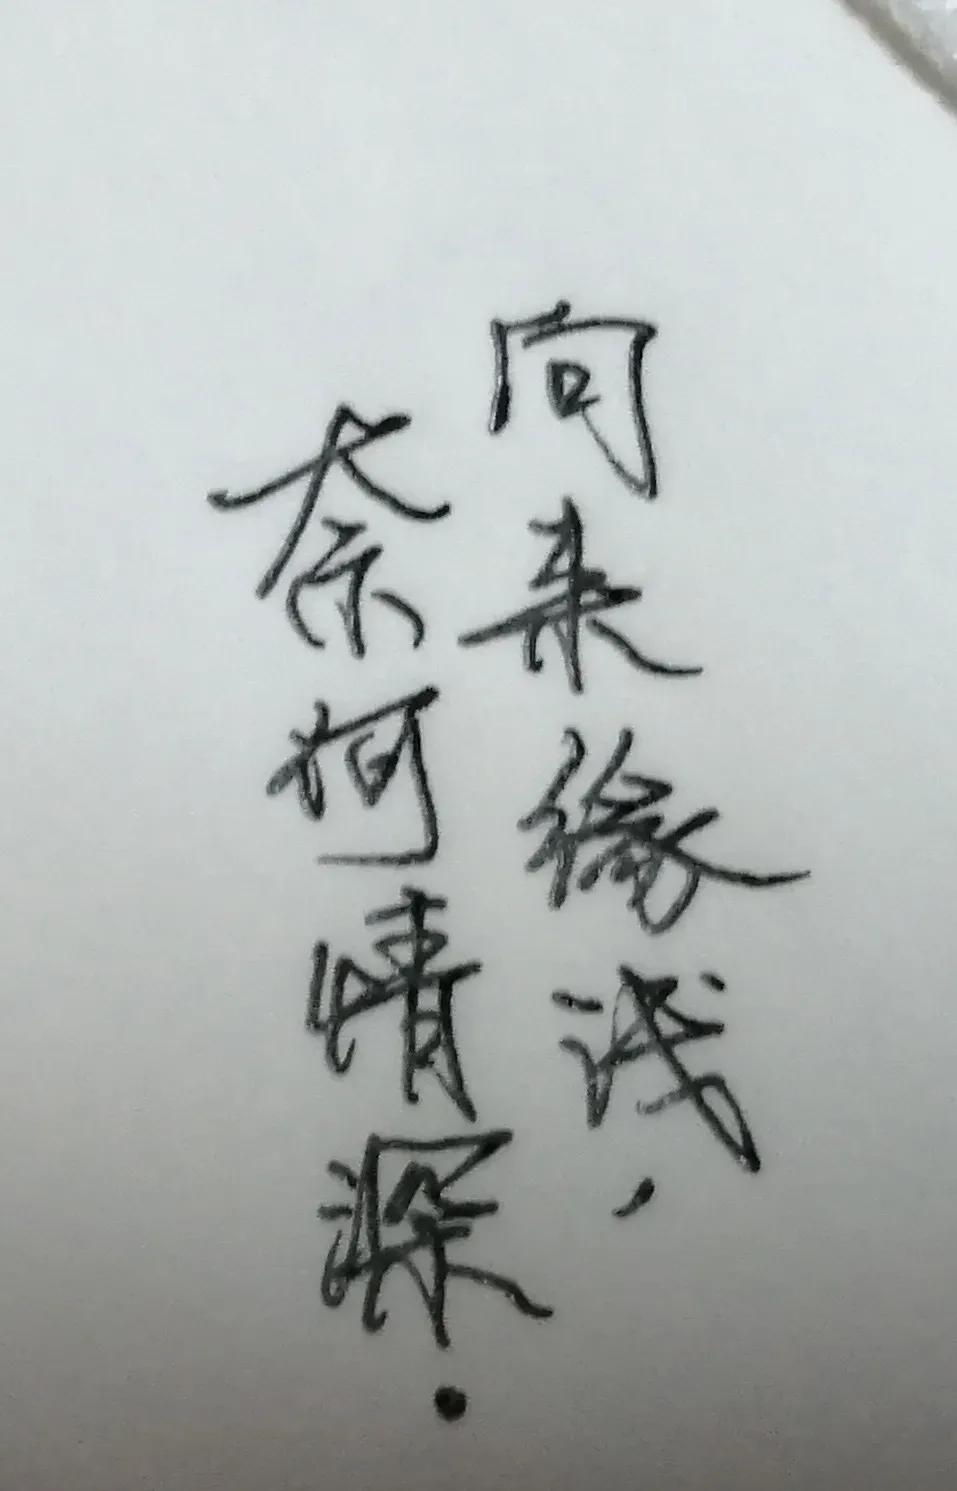 向来缘浅，
奈何情深.